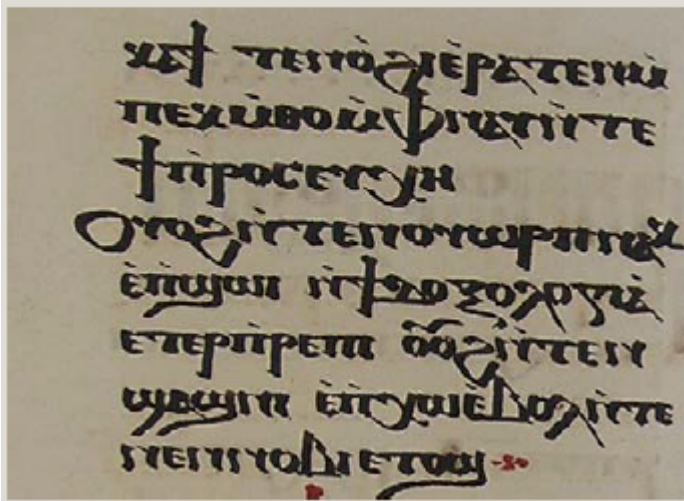 ⲕⲁϯ ⲧⲉⲛⲟ̀ϩⲓ ⲉ̀ⲣⲁⲧⲉⲛ ⲙ̀
ⲡⲉⲕⲙ̀ⲑⲟ ⲙ̀ⲫⲛⲁⲩ ⲛ̀ⲧⲉ
ϯⲡ̀ⲣⲟⲥⲉⲩⲭⲏ
Ⲟⲩⲟϩ ⲛ̀ⲧⲉⲛⲟⲩⲱⲣⲡ ⲛⲁⲕ
ⲉ̀ⲡ̀ϣⲱⲓ ⲛ̀ϯⲇⲟⲝⲟⲗⲟⲅⲓⲁ
ⲉⲧⲉⲣⲡ̀ⲣⲉⲡⲓ ⲟⲩⲟϩ ⲛ̀ⲧⲉⲛ
ϣⲁϣⲛⲓ ⲉ̀ⲡ̀ⲭⲱ ⲉ̀ⲃⲟⲗ ⲛ̀ⲧⲉ
ⲛⲉⲛⲛⲟⲃⲓ ⲉⲧⲟϣ